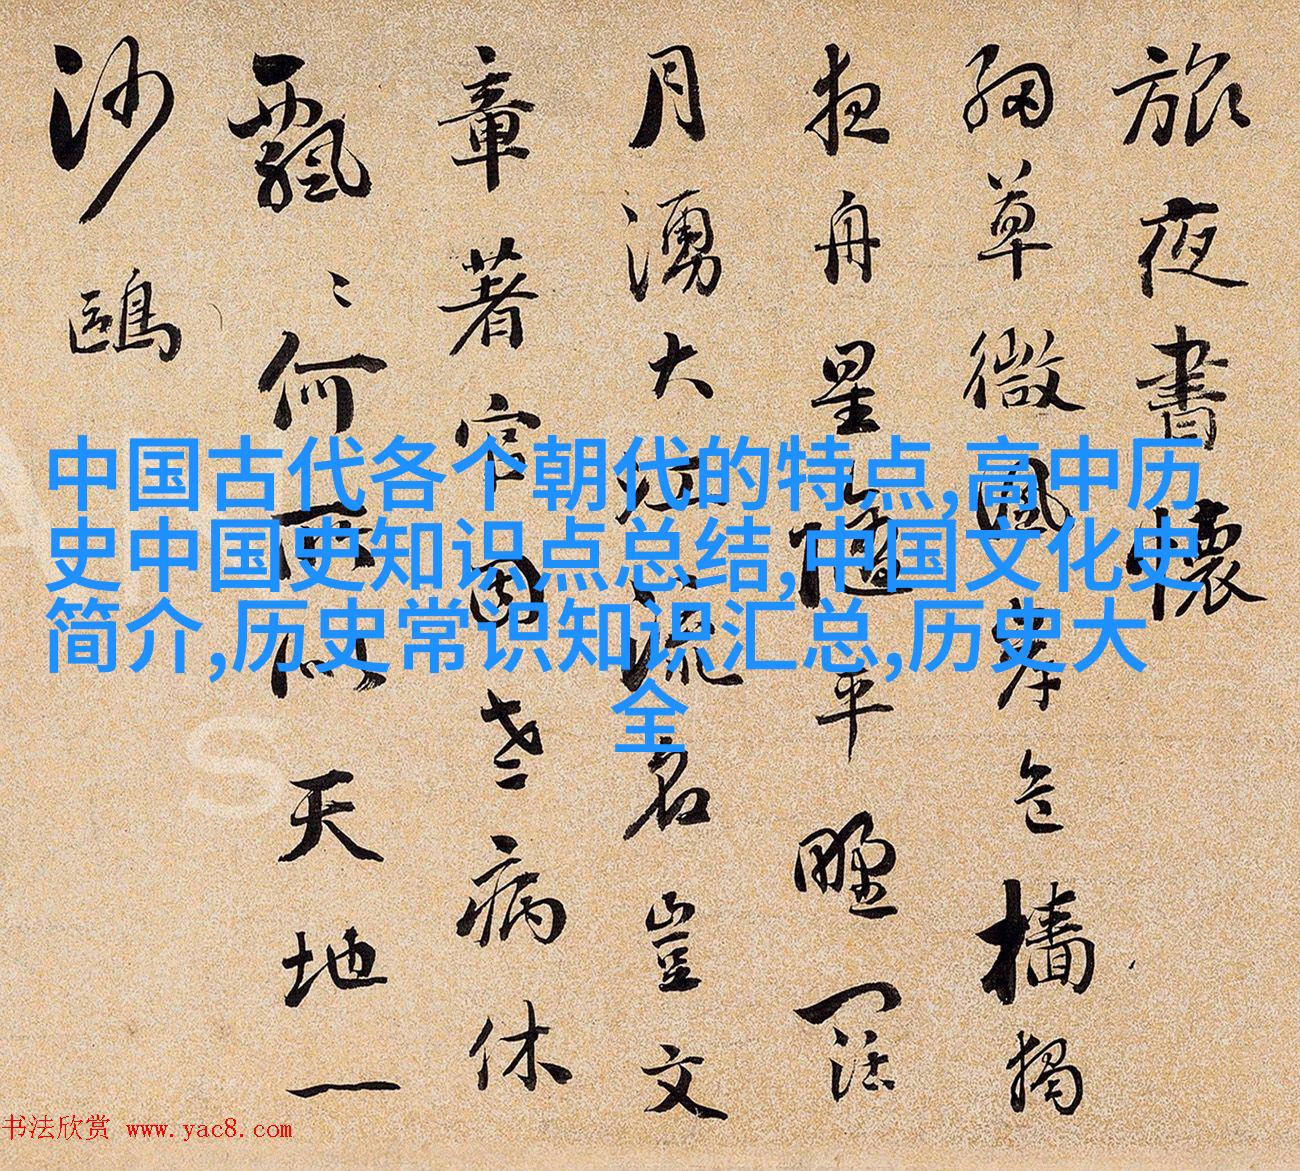 旅夜書懷
細草微風岸危檣獨
夜舟星隨平野闊
月湧大江流名豈文
章著官因老病休
飄〻何所似天地一
沙鷗
中国古代各个朝代的特点,高中历
史中国史知识点总结,中国文化史
简介,历史常识知识汇总,历史大
全
书法欣赏 www.yac8.com